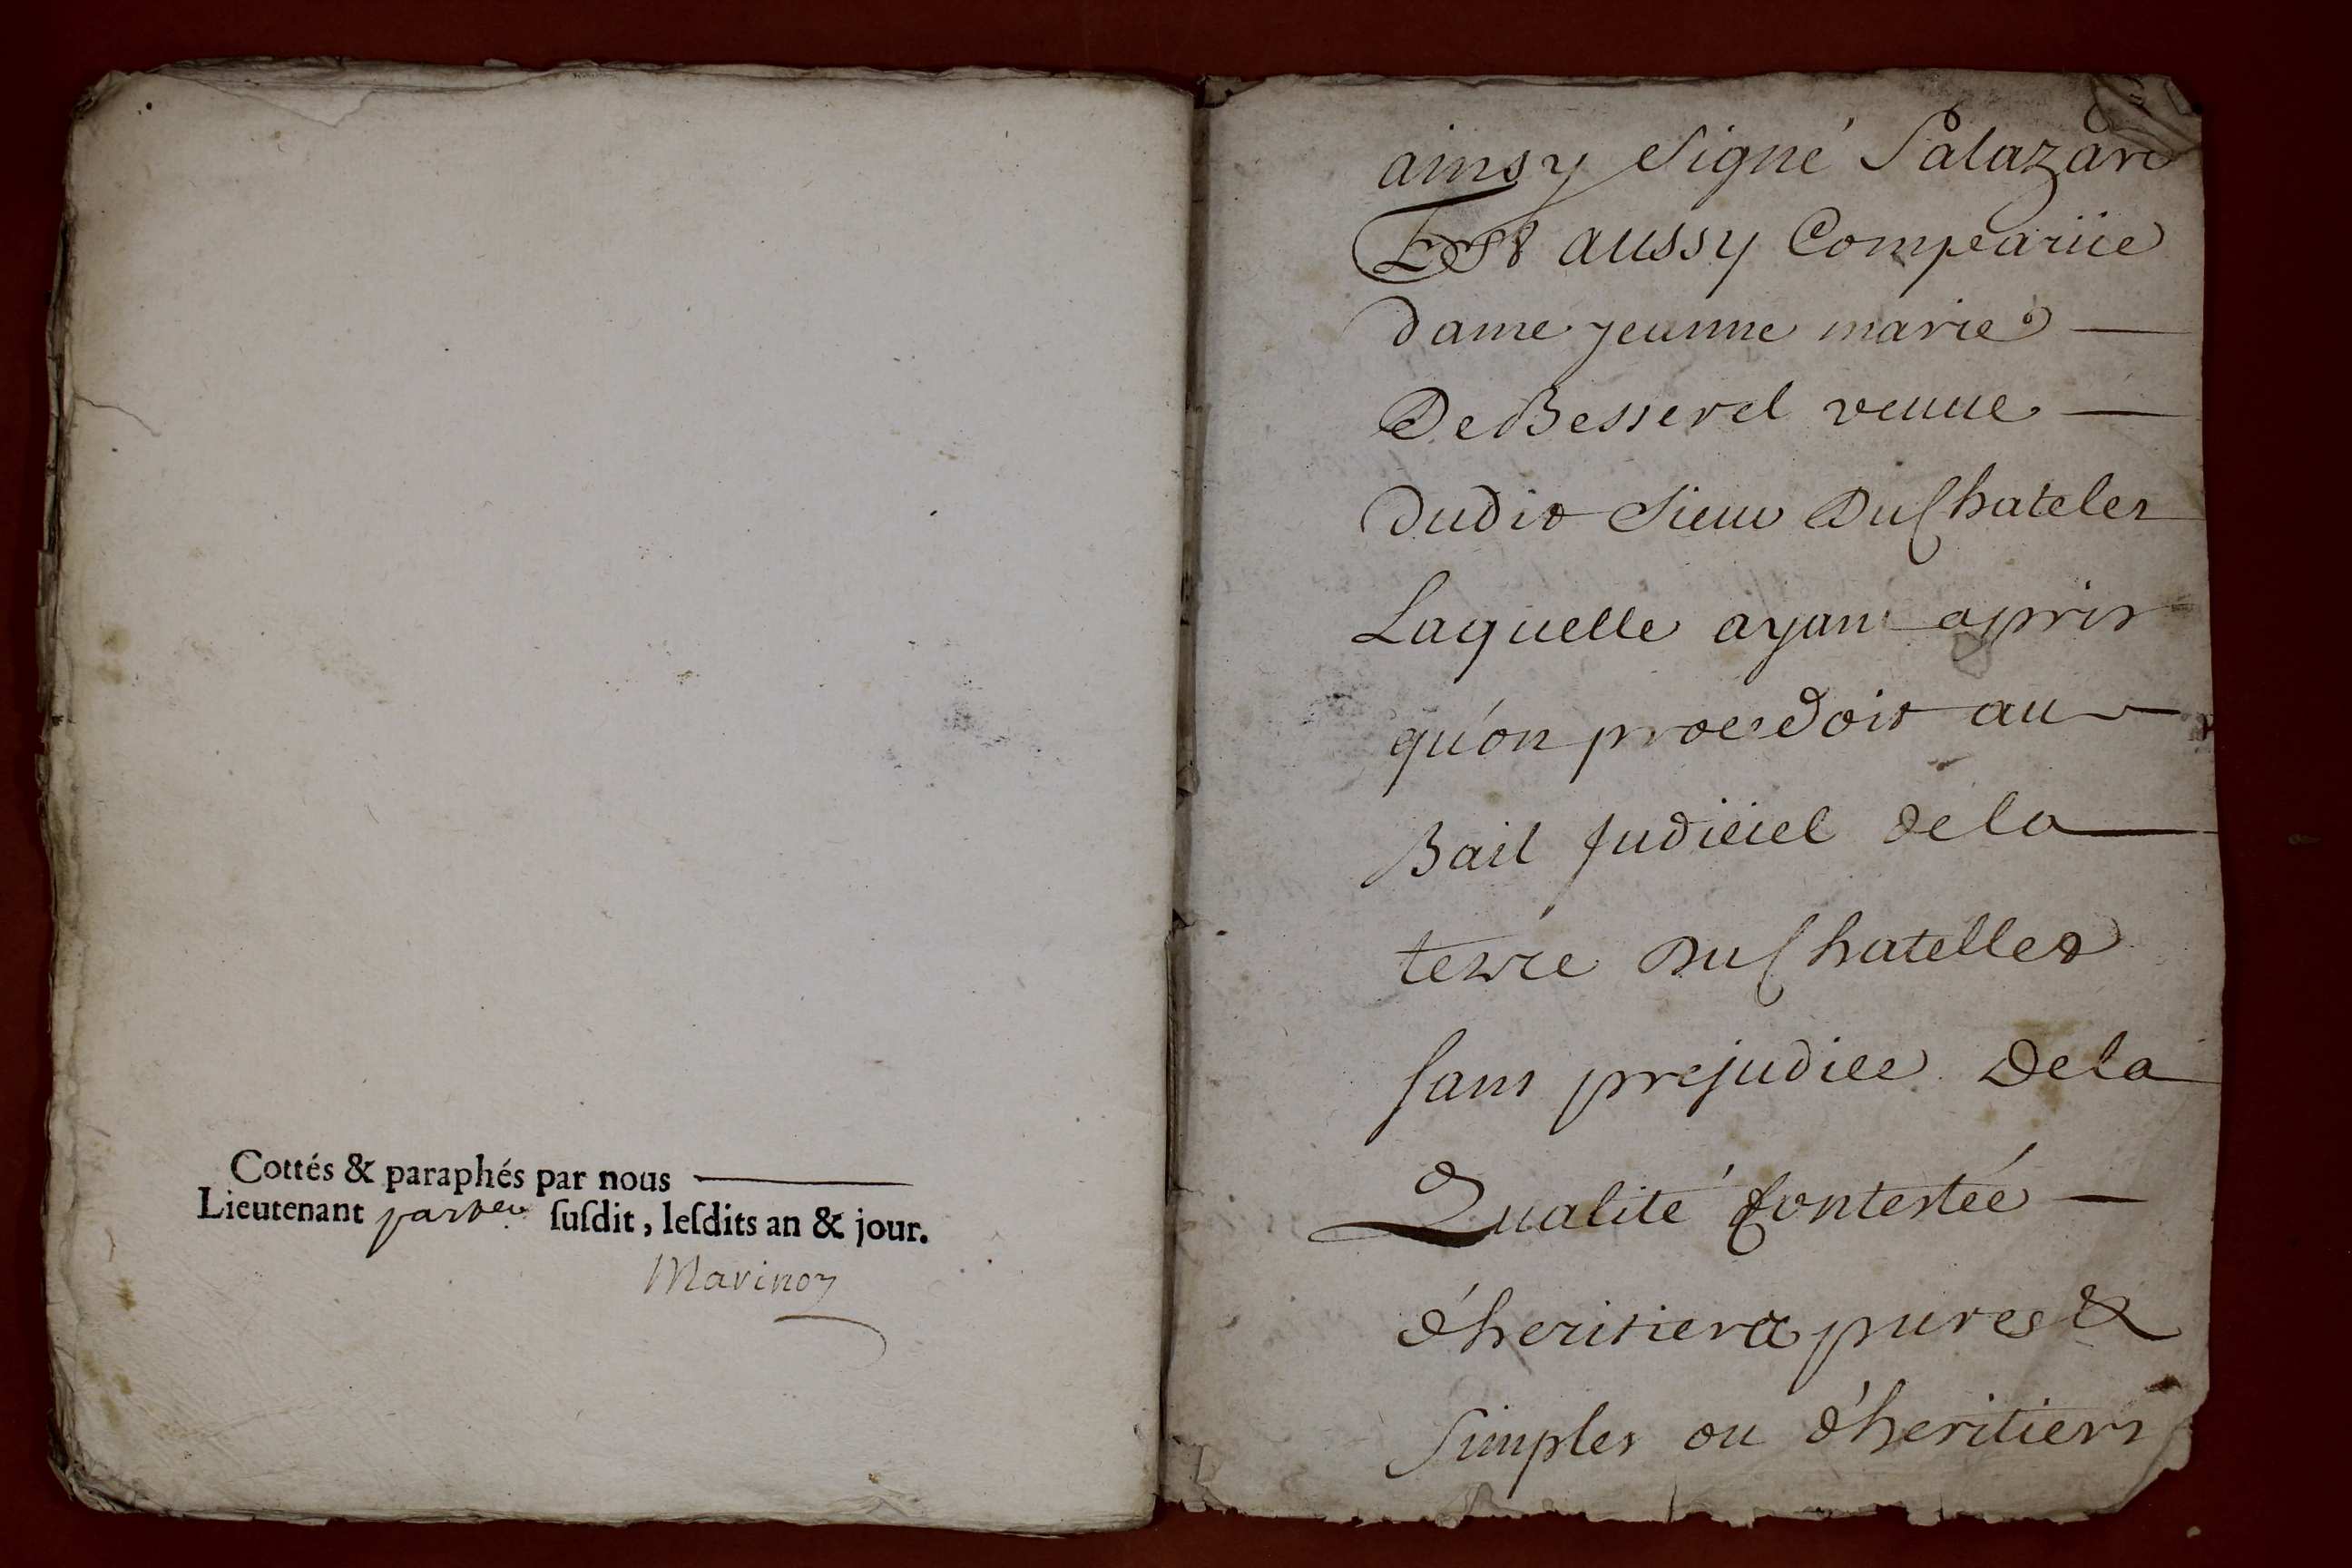 Cottés & paraphés par nous
Lieutenant partier susdit, lesdits an & jour.
Marinoz
ainsy signé Salazare
Est aussy Comparüe
dame jeanne marie
De Besserel veuue
dudit sieur Du Chatelet
Laquelle ayant apris
qu'on procedoit au
Bail judiciel de la
terre Du Chatellet
sans prejudice de la
Qualité Contestée
d'heritiere pures &
simples ou d'heritiers